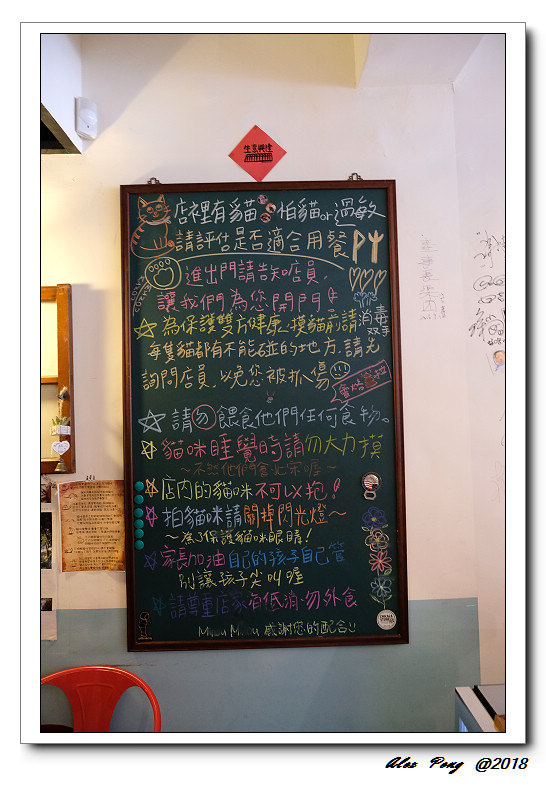 生意興隆
店裡有貓。怕貓or過敏
請評估是否適合用餐
進出門請告知店員,
讓我們為您開門!
☆為保護雙方健康.摸貓前請消毒雙手
每隻貓都有不能碰的地方.請先
詢問店員.以免您被抓傷
☆請勿餵食他們任何食物。
☆貓咪睡覺時請勿大力摸
~不然他們會
☆店內的貓咪不可以抱!
☆拍貓咪請關掉閃光燈~
~為了保護貓咪眼睛!
☆家長加油自己的孩子自己管
別讓孩子尖叫喔
☆請尊重店家有低消.勿外食
感謝您的配合!!
Alex Pong @2018